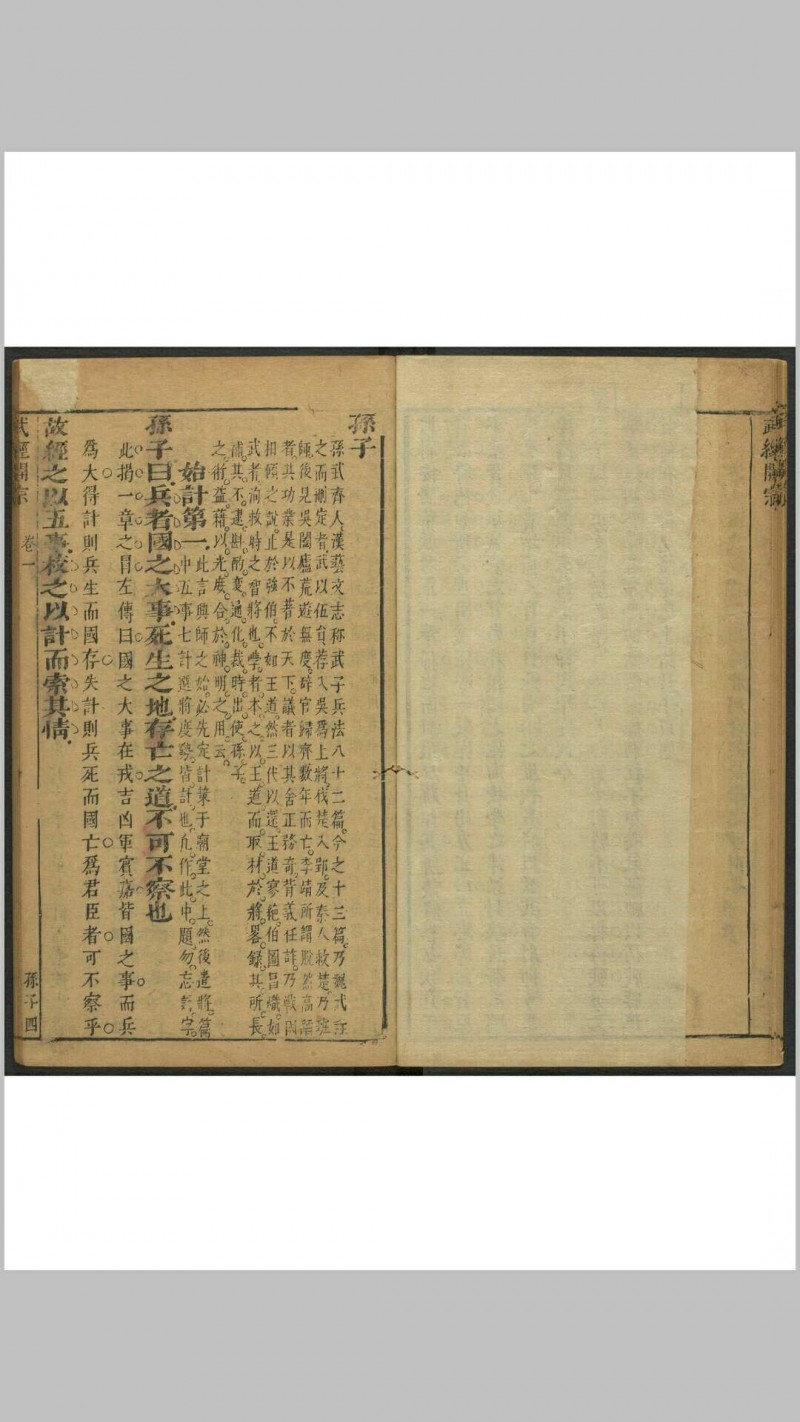 武經開宗
孫子
孫武齊人漢藝文志称武子兵法八十二篇今之十三篇乃魏武註
之而刪定者武以伍員荐入吳為上將伐楚入郢及秦人救楚乃班
師後見吳闔廬荒遊無度辞官歸齊数年而亡李靖所謂脫然高蹈
者其功業是以不著於天下議者以其舍正務奇背義任詐乃戰国
相傾之說止於強伯不如王道然三代以還王道寥絶伯圖昌熾如
武者淌救時之智將也學者本之以王道而取材於將畧録其所長
補其不逮斟酌変通化裁時出使孫子
之術益藉以光度合於神明之用云
始計第一
此言興師之始必先定計策于廟堂之上然後遣將篇
中五事七計選將度勢皆計也凡作此中題勿忘計字
孫子曰兵者國之大事死生之地存亡之道不可不察也
此揭一章之目左傳曰國之大事在戎吉凶軍賓嘉皆國之事而兵
為大得計則兵生而國存失計則兵死而國亡為君臣者可不察乎
故經之以五事校之以計而索其情
武經開宗 卷一 孫子四